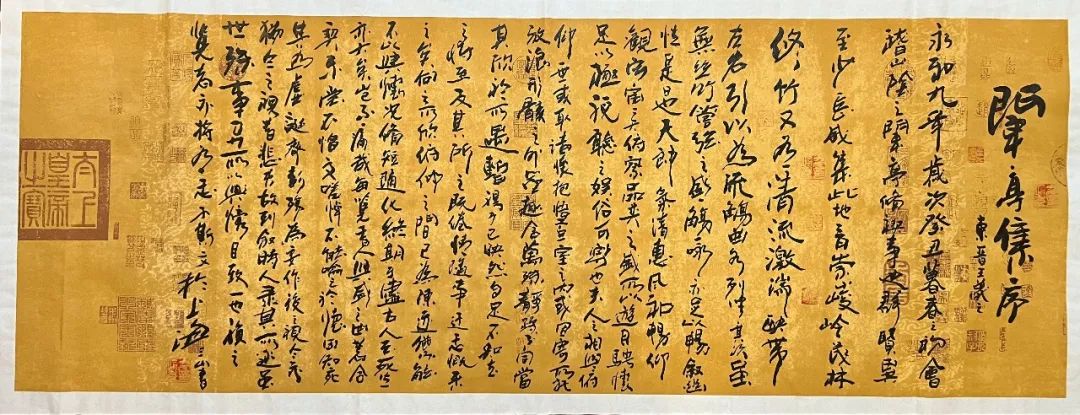 蘭亭集序
東晉王羲之
永和九年歲次癸丑暮春之初會
稽山陰之蘭亭脩禊事也群賢畢
至少長咸集此地有崇峻嶺茂林
修竹又有清流激湍映帶
左右引以為流觴曲水列坐其次雖
無絲竹管弦之盛觴詠亦足以暢叙幽
情是日也天朗氣清惠風和暢仰
觀宇宙之大俯察品類之盛所以遊目騁懷
足以極視聽之娛信可樂也夫人之相與俯
仰一世或取諸懷抱悟言一室之內或因寄所託
放浪形骸之外雖趣舍萬殊靜躁不同當
其欣於所遇暫得於己快然自足不知老
之將至及其所之既倦情隨事遷感慨系
之矣向之所欣俯仰之間已為陳迹猶不能
不以興懷況脩短隨化終期于盡古人云死生
亦大矣豈不痛哉每覽昔人興感之由若合
一契未嘗不臨文嗟悼不能喻之於懷固知死
生為虛誕齊彭殤為妄作後之視今亦
猶今之視昔悲夫故列叙時人錄其所述雖
世殊事異所以興懷其致一也後之
覽者亦將有感於斯文 於上海
太上
皇帝
之寶